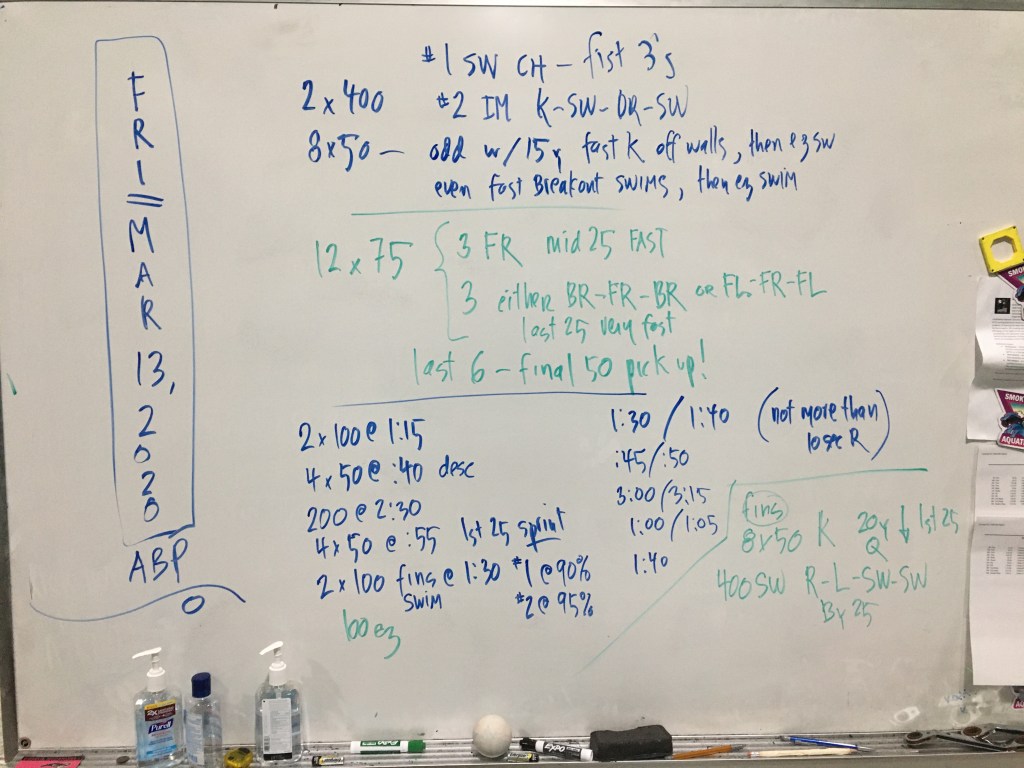 FRI
MAR
13,
2020
ABP
#1 SW CH - fist 3's
2 x 400 #2 IM K-SW-DR-SW
8x50 - odd w/15y fast K off walls, then ez SW
even fast Breakout SWIMS, then ez SWIM
12 x 75 { 3 FR mid 25 FAST
3 either BR-FR-BR or FL-FR-FL
last 25 very fast
last 6 - final 50 pick up!
2 x 100 @ 1:15 1:30 / 1:40 (not more than
10sec R)
4 x 50 @ :40 desc :45/:50
200 @ 2:30 3:00/3:15
4 x 50 @ :55 1st 25 sprint 1:00/1:05
2 x 100 fins @ 1:30 #1 @ 90% 1:40
SWIM #2 @ 95%
100 ez
fins
8x50 K 20y ↓ 1st 25
Q
400 SW R-L-SW-SW
By 25
Purell
EXPO
EXPO